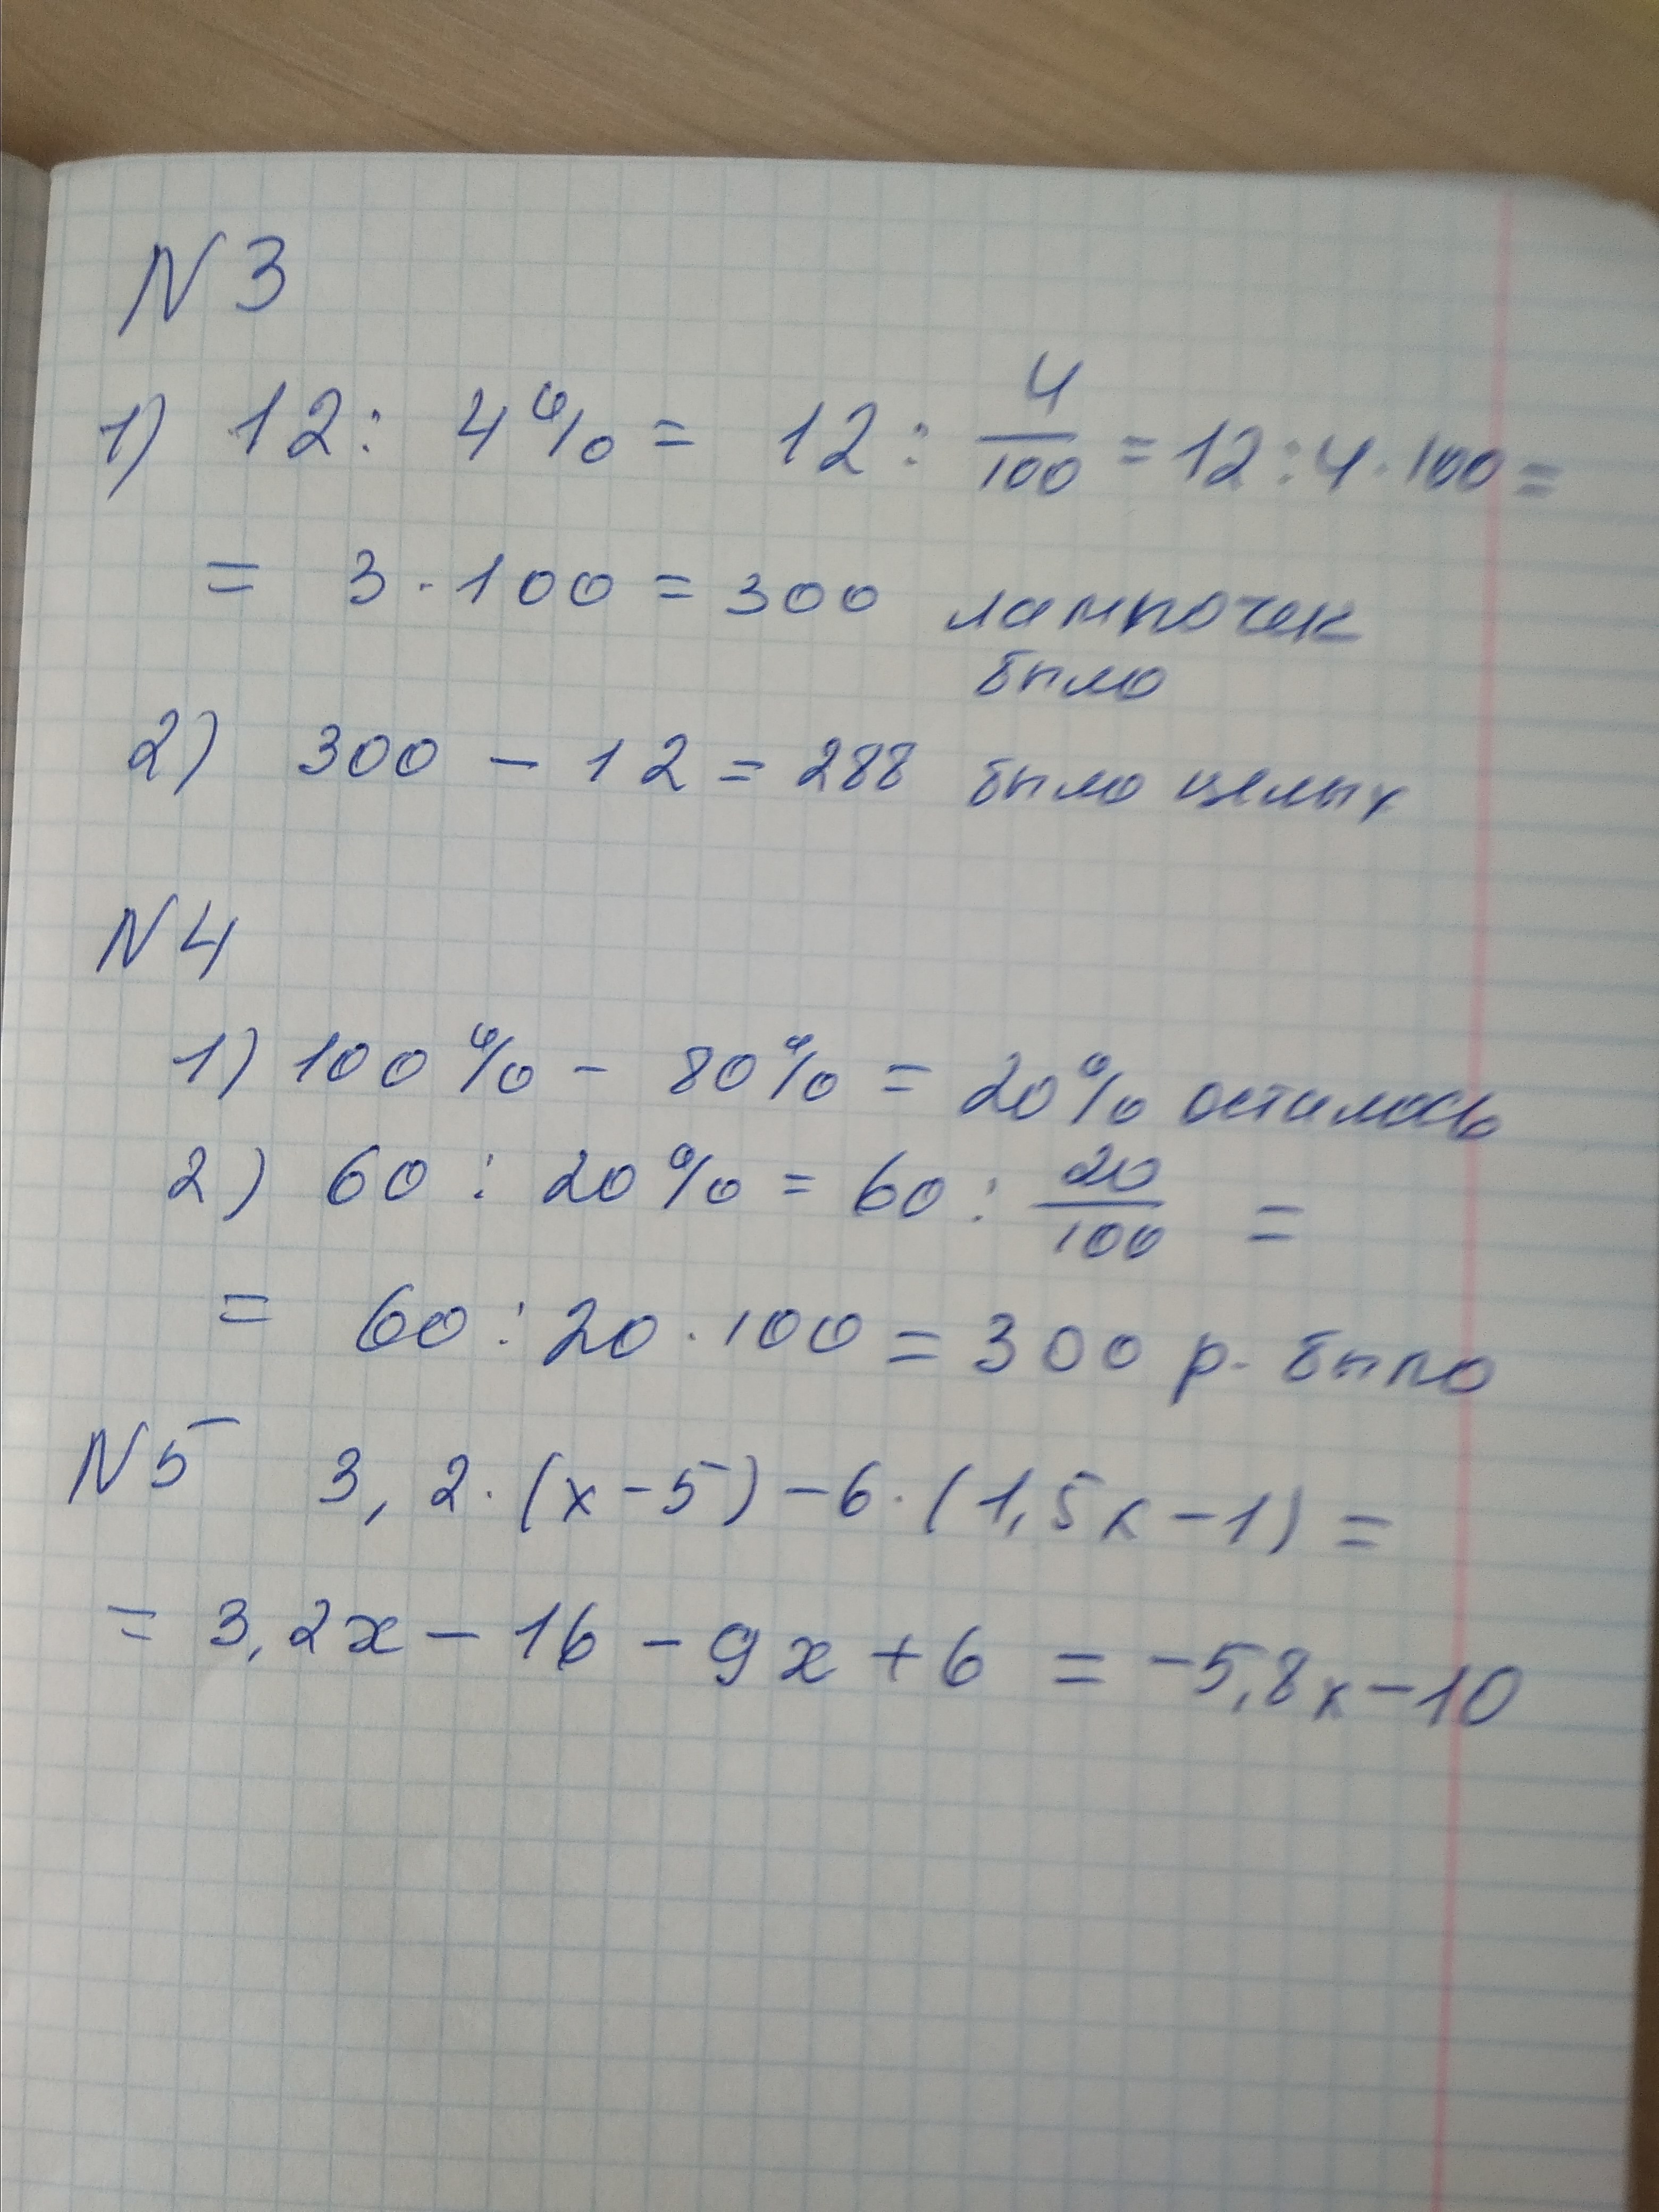 N3
1) 12 : 4% = 12 : 4/100 = 12 : 4 · 100 =
= 3 · 100 = 300 лампочек
было
2) 300 - 12 = 288 было целых
N4
1) 100% - 80% = 20% осталось
2) 60 : 20% = 60 : 20/100 =
= 60 : 20 · 100 = 300 р. было
N5 3,2 · (x - 5) - 6 · (1,5x - 1) =
= 3,2x - 16 - 9x + 6 = -5,8x - 10